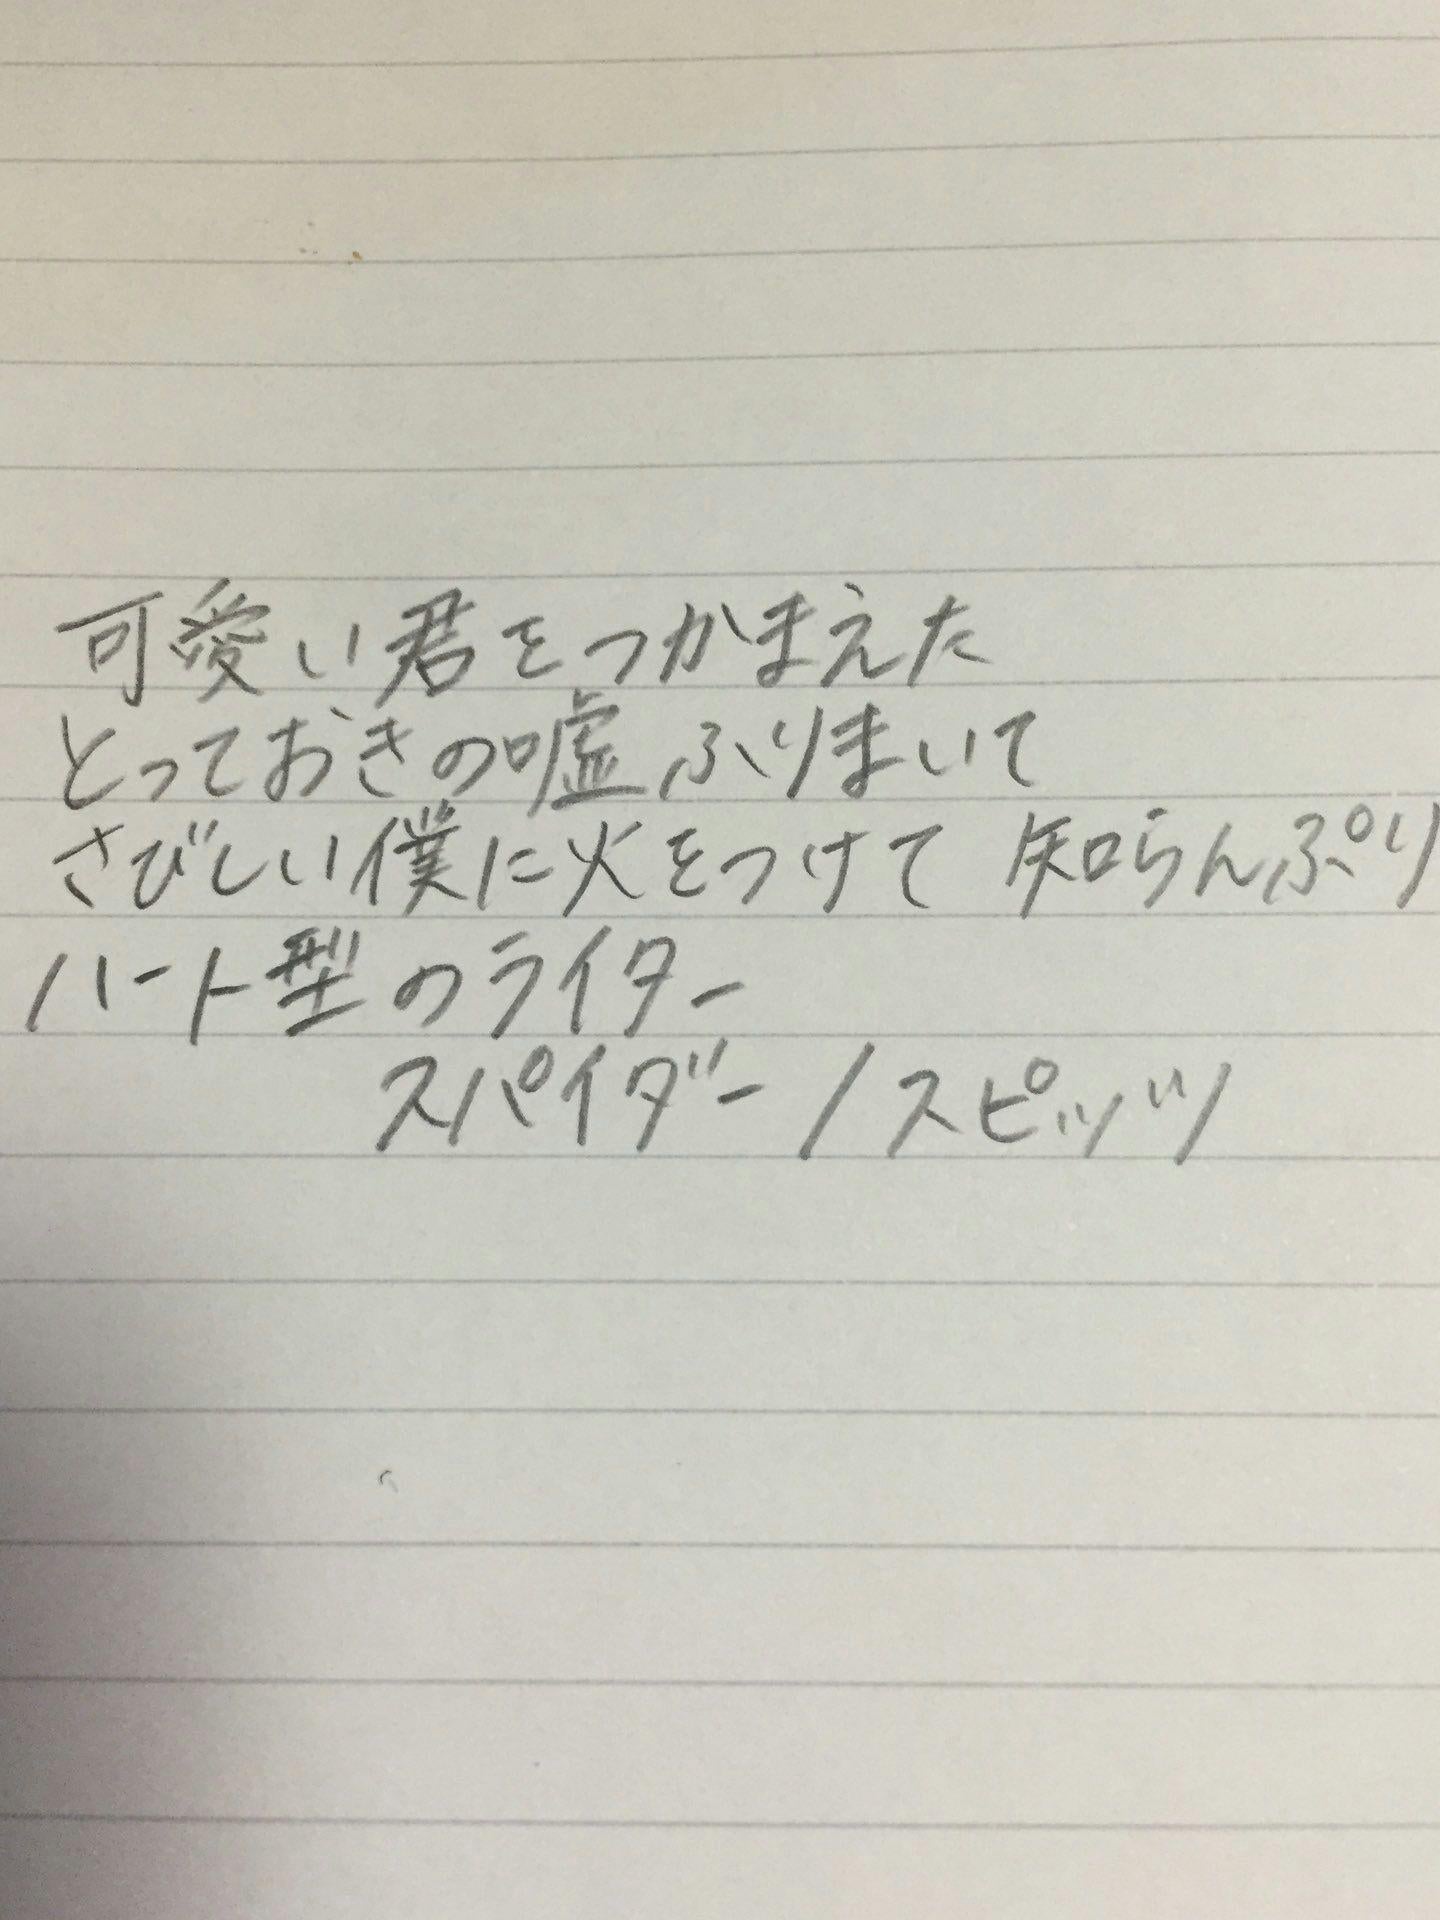 可愛い君をつかまえた
とっておきの嘘ふりまいて
さびしい僕に火をつけて 知らんぷり
ハート型のライター
スパイダー/スピッツ